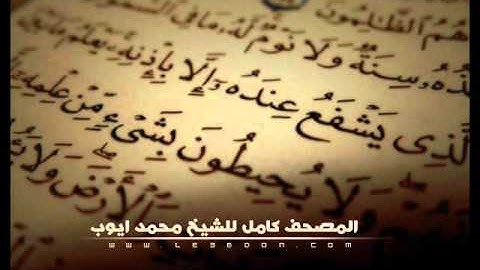 هُمُ ٱلظَّٰلِمُونَ
سِنَةٌ وَلَا نَوْمٌ لَّهُۥ مَا فِي
لَّذِي يَشْفَعُ عِندَهُۥٓ إِلَّا بِإِذْنِهِۦ يَعْلَمُ
وَلَا يُحِيطُونَ بِشَيْءٍ مِّنْ عِلْمِهِۦٓ
ٱلْأَرْضَ وَلَا
المصحف كامل للشيخ محمد ايوب